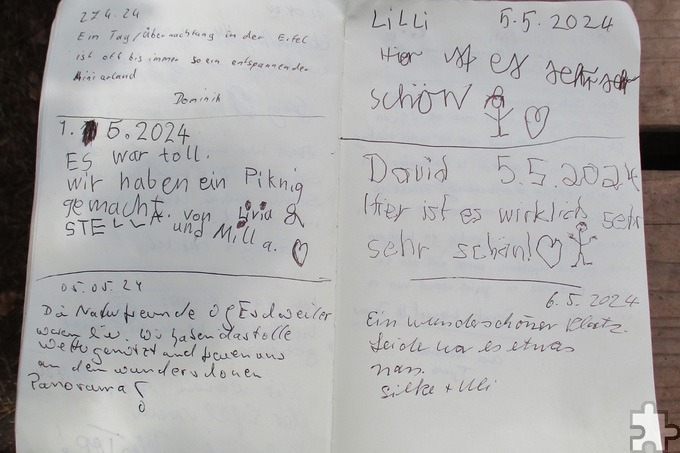 27.4.24
Ein Tag/Übernachtung in der Eifel
ist oft bis immer so ein entspannender
Miniurland
Dominik
1. 5.2024
ES war toll.
wir haben ein Piknig
gemacht. von Livia &
STELLA und Milla.
05.05.24
Die Naturfreunde OG Eschweiler
waren hier. Wir haben das tolle
Wetter genutzt und freuen uns
an dem wunderschönen
Panorama!
LiLLi 5.5.2024
Hier ist es sehr sehr
schön
David 5.5.2024
Hier ist es wirklich sehr
sehr schön!
6.5.2024
Ein wunderschöner Platz.
Leider war es etwas
nass.
Silke + Uli